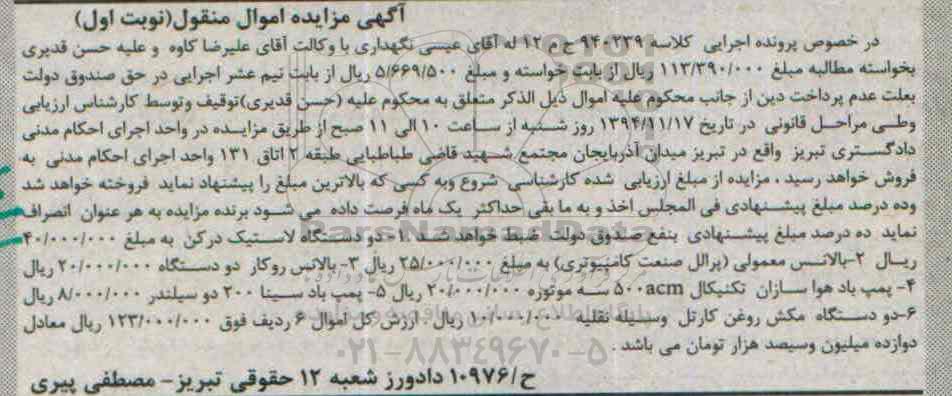 آگهی مزایده اموال منقول(نوبت اول)
در خصوص پرونده اجرایی کلاسه ۹۴۰۲۳۹ ج م ۱۲ له آقای عیسی نگهداری با وکالت آقای علیرضا کاوه و علیه حسن قدیری
بخواسته مطالبه مبلغ ۱۱۳/۳۹۰/۰۰۰ ریال از بابت خواسته و مبلغ ۵/۶۶۹/۵۰۰ ریال از بابت نیم عشر اجرایی در حق صندوق دولت
بعلت عدم پرداخت دین از جانب محکوم علیه اموال ذیل الذکر متعلق به محکوم علیه (حسن قدیری)توقیف وتوسط کارشناس ارزیابی
وطی مراحل قانونی در تاریخ ۱۳۹۴/۱۱/۱۷ روز شنبه از ساعت ۱۰ الی ۱۱ صبح از طریق مزایده در واحد اجرای احکام مدنی
دادگستری تبریز واقع در تبریز میدان آذربایجان مجتمع شهید قاضی طباطبایی طبقه ۲ اتاق ۱۳۱ واحد اجرای احکام مدنی به
فروش خواهد رسید . مزایده از مبلغ ارزیابی شده کارشناسی شروع وبه کسی که بالاترین مبلغ را پیشنهاد نماید فروخته خواهد شد
وده درصد مبلغ پیشنهادی فی المجلس اخذ و به ما بقی حداکثر یک ماه فرصت داده می شود برنده مزایده به هر عنوان انصراف
نماید ده درصد مبلغ پیشنهادی بنفع صندوق دولت ضبط خواهد شد .۱- دو دستگاه لاستیک درکن به مبلغ ۴۰/۰۰۰/۰۰۰
ریال ۲-بالانس معمولی (پرالل صنعت کامپیوتری) به مبلغ ۲۵/۰۰۰/۰۰۰ ریال ۳- بالانس روکار دو دستگاه ۲۰/۰۰۰/۰۰۰ ریال
۴- پمپ باد هوا سازان تکنیکال ۵۰۰acm سه موتوره ۲۰/۰۰۰/۰۰۰ ریال ۵- پمپ باد سینا ۲۰۰ دو سیلندر ۸/۰۰۰/۰۰۰ ریال
۶-دو دستگاه مکش روغن کارتل وسیله نقلیه ۱۰/۰۰۰/۰۰۰ ریال . ارزش کل اموال ۶ ردیف فوق ۱۲۳/۰۰۰/۰۰۰ ریال معادل
دوازده میلیون وسیصد هزار تومان می باشد .
۰۲۱-۸۸۳۴۹۶۷۰-۵
ح/۱۰۹۷۶ دادورز شعبه ۱۲ حقوقی تبریز- مصطفی پیری
ParsNamadData